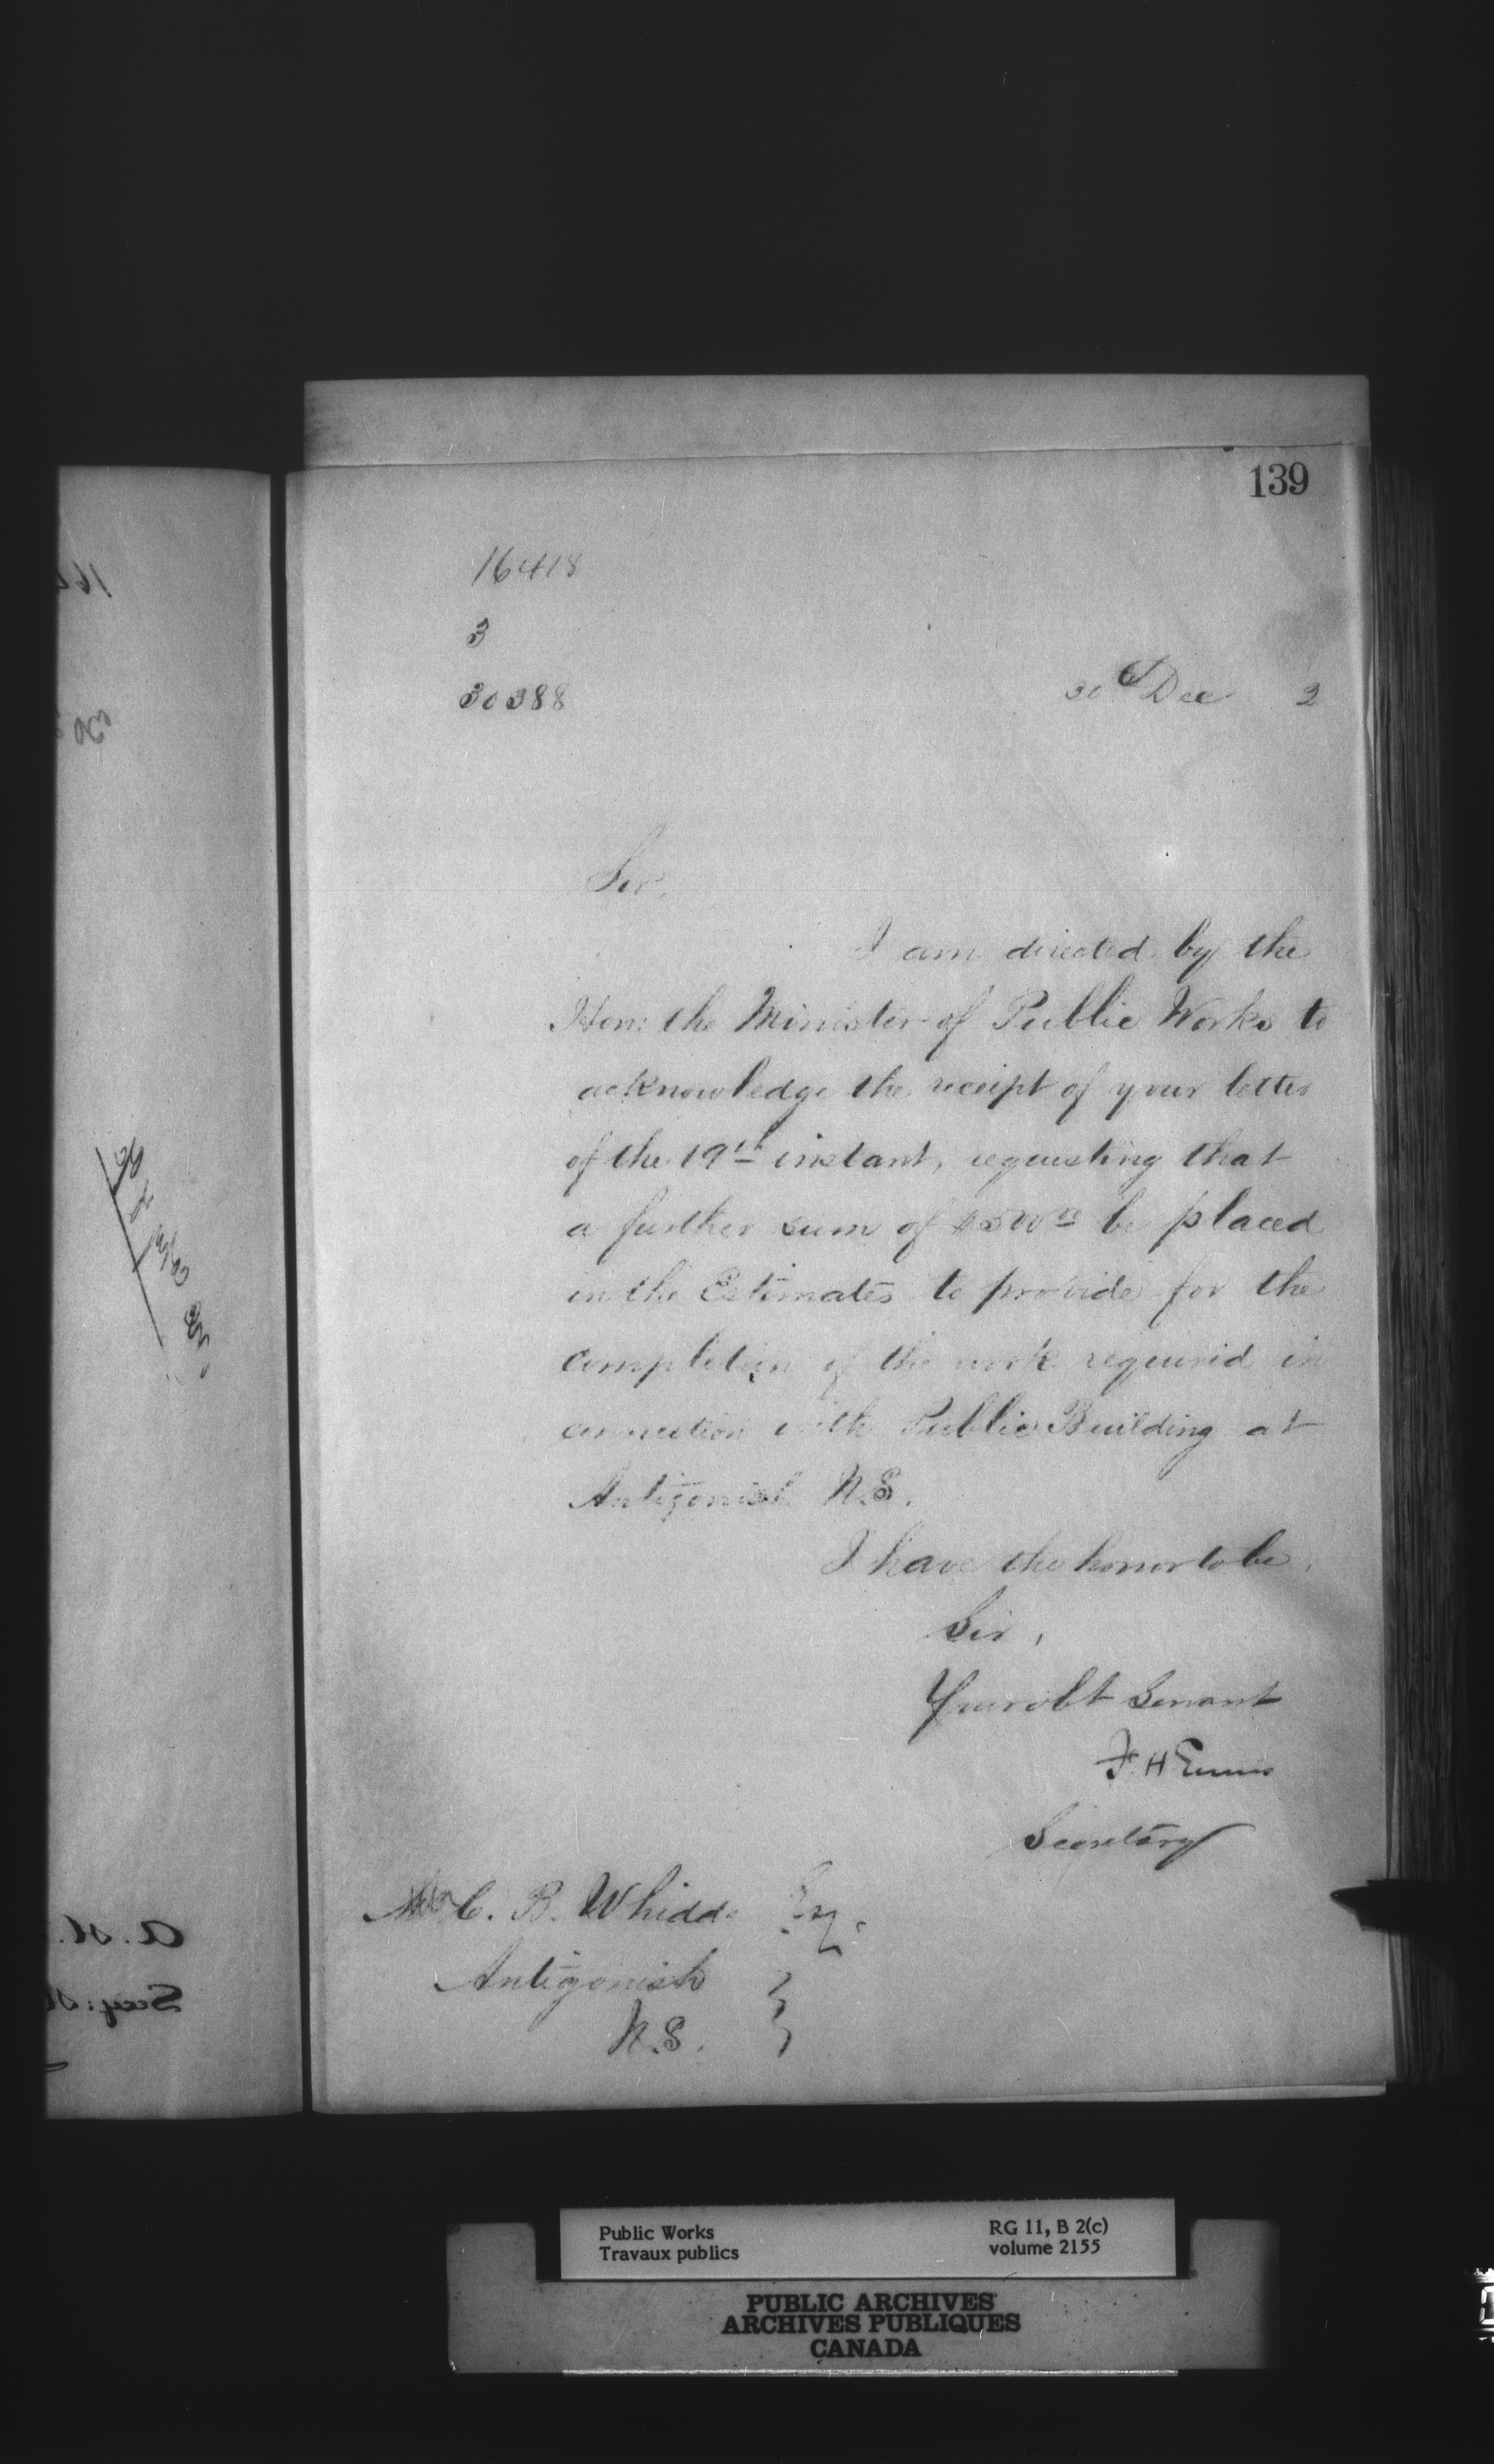 139
16418
3
30388
30th Dec 2
Sir,
I am directed by the
Hon: the Minister of Public Works to
acknowledge the receipt of your letter
of the 19th instant, requesting that
a further sum of be placed
in the Estimates to provide for the
completion of the work required in
connection with Public Building at
Antigonish N.S.
I have the honor to be,
Sir,
Your obt Servant
F. H Ennis
Secretary
C. B. Whidde Esq.
Antigonish
N.S.
Public Works
Travaux publics
RG 11, B 2(c)
volume 2155
PUBLIC ARCHIVES
ARCHIVES PUBLIQUES
CANADA